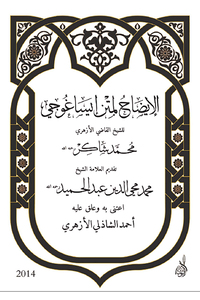 الإيضاح لمتن إيساغوجي
للشيخ القاضي الأزهري
محمد شاكر رحمه الله
تقديم العلامة الشيخ
محمد محيي الدين عبد الحميد رحمه الله
اعتنى به وعلق عليه
أحمد الشاذلي الأزهري
2014